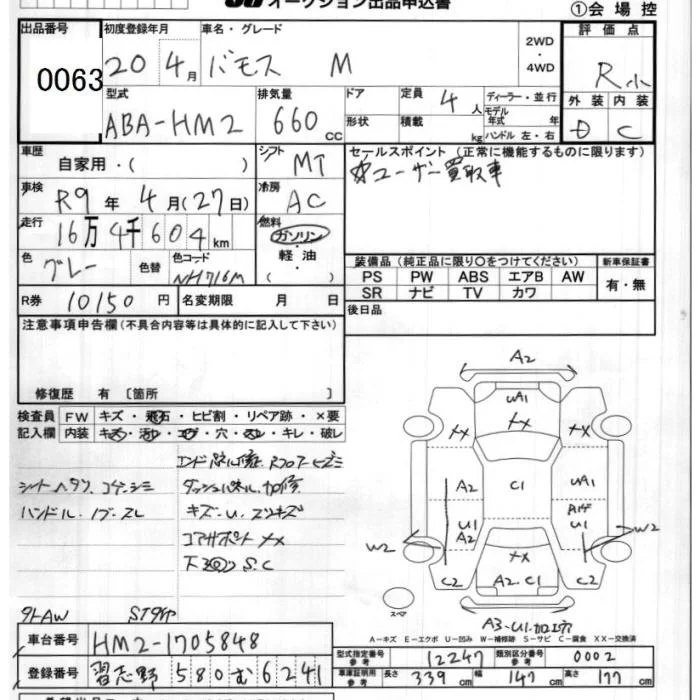 オークション出品申込書
①会場控
出品番号 0063
初度登録年月 20 4月
車名・グレード バモス M
2WD・4WD
評価点 R小
外装 D 内装 C
型式 ABA-HM2
排気量 660cc
ドア形状
定員 4人
積載 kg
ディーラー・並行
モデル年式 年
ハンドル 左・右
車歴 自家用・( )
シフト MT
セールスポイント(正常に機能するものに限ります)
☆ユーザー買取車
車検 R9年 4月(27日)
冷房 AC
走行 16万4千604km
燃料 ガソリン・軽油・( )
色 グレー 色替
色コード NH716M
装備品(純正品に限り○をつけてください)
新車保証書 有・無
PS PW ABS エアB AW
SR ナビ TV カワ
R券 10150円
名変期限 月 日
後日品
注意事項申告欄(不具合内容等は具体的に記入して下さい)
修復歴 有〔箇所 〕
検査員記入欄
FW キズ・飛石・ヒビ割・リペア跡・×要
内装 キズ・汚れ・コゲ・穴・スレ・キレ・破レ
シートヘタリ、コゲ、シミ
ハンドル、ノブスレ
キズ・U・スリキズ
コアサポート XX
S.C
A2
UA1
XX
XX
XX
A2
C1
UA1
U1
A2
U1
W2
W2
XX
C2
A2・C1
C2
スペア
A3・U1・加工穴
A-キズ E-エクボ U-凹み W-補修跡 S-サビ C-腐食 XX-交換済
車台番号 HM2-1705848
登録番号 習志野 580 む 6241
型式指定番号 参考 12247
類別区分番号 参考 0002
車庫証明用 参考 長さ 339cm 幅 147cm 高さ 177cm